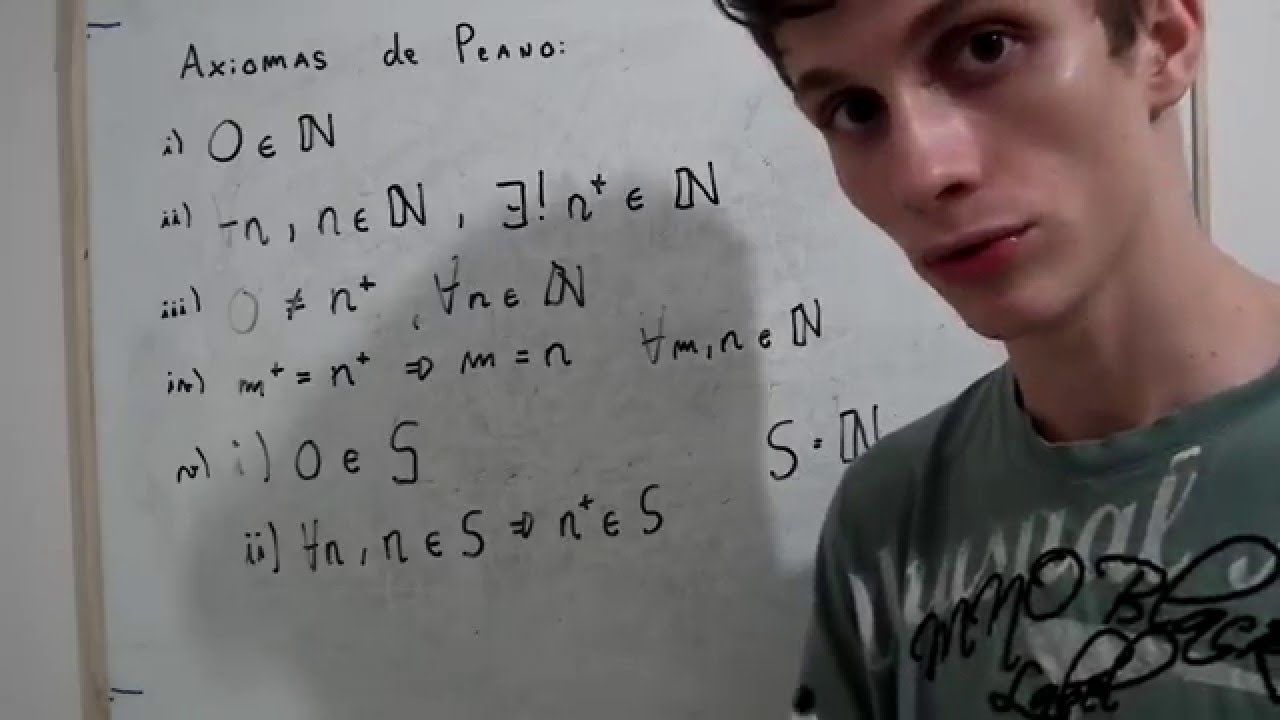 Axiomas de Peano:
i) 0 ∈ ℕ
ii) ∀n, n ∈ ℕ, ∃! n⁺ ∈ ℕ
iii) 0 ≠ n⁺, ∀n ∈ ℕ
iv) m⁺ = n⁺ ⇒ m = n ∀m, n ∈ ℕ
v) i) 0 ∈ S S = ℕ
ii) ∀n, n ∈ S ⇒ n⁺ ∈ S
Label